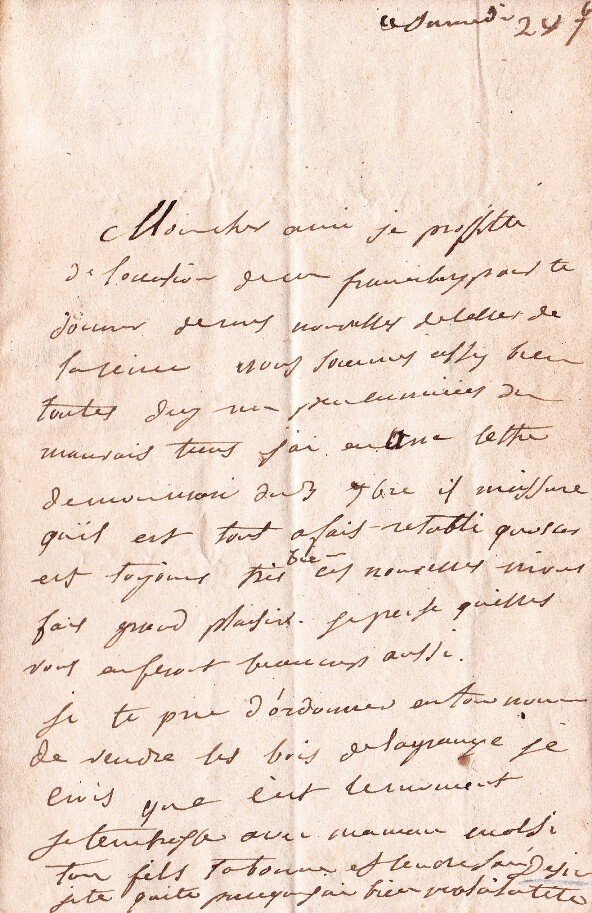 ce Samedi 24 7
Mon cher ami je proffitte
de loccasion de franchery pour te
donner de mes nouvelles de celles de
la reine nous sommes assés bien
toutes deux un peu ennuiées du
mauvais tems j'ai eu une lettre
de mon mari du 3 7bre il m'assure
quil est tout afait retabli que
est toujours très bien ces nouvelles mont
fais grand plaisir. je pense quelles
vous enferont beaucoup aussi.
je te prie d'ordonner enton nom
de vendre les bois delagrange je
crois que c'est le moment
je tembrasse avec maman
ton fils ta bonne et tendre
je te quite jai bien mal a la tete